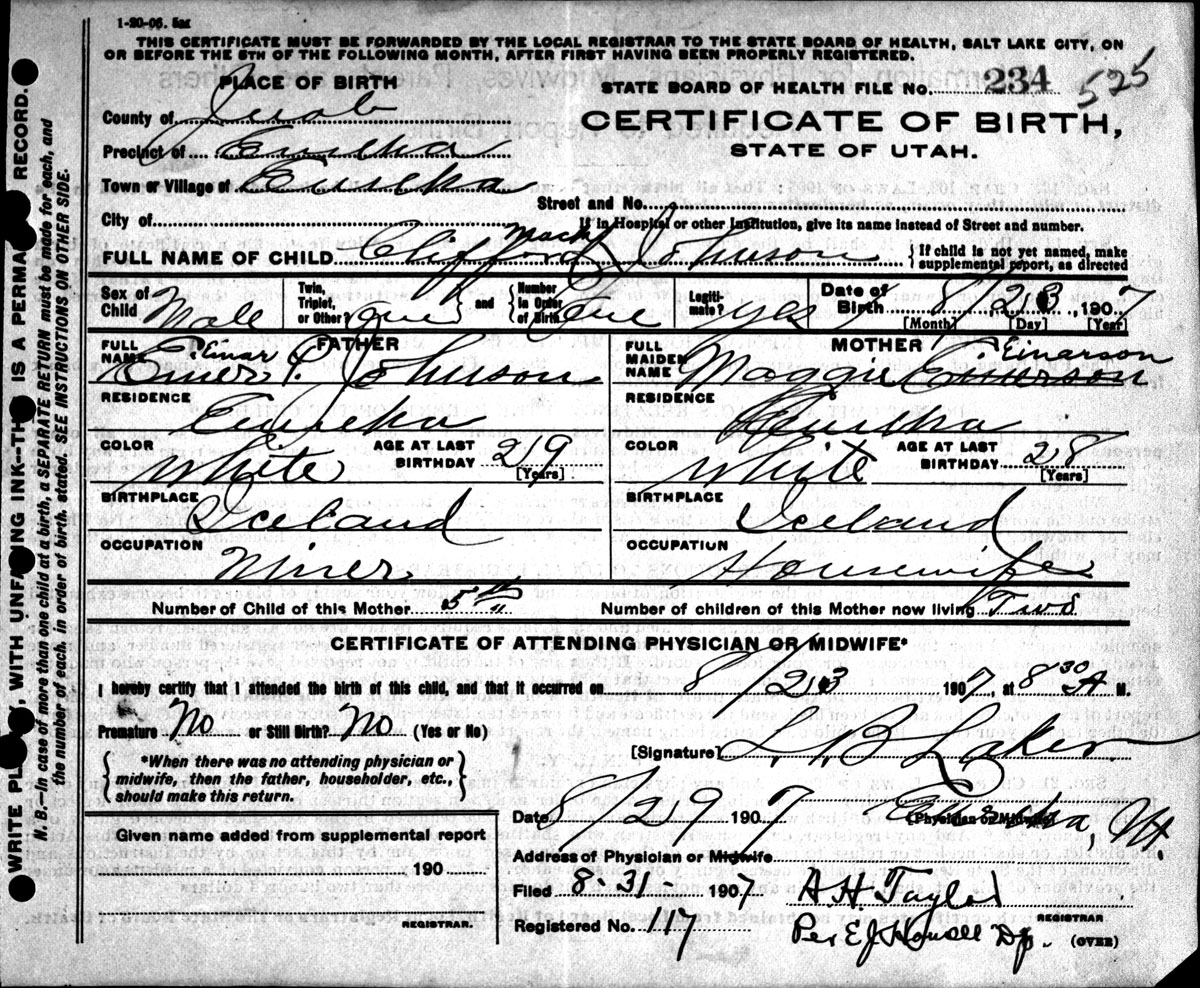 1-20-06. 5m
THIS CERTIFICATE MUST BE FORWARDED BY THE LOCAL REGISTRAR TO THE STATE BOARD OF HEALTH, SALT LAKE CITY, ON
OR BEFORE THE 5TH OF THE FOLLOWING MONTH, AFTER FIRST HAVING BEEN PROPERLY REGISTERED.
PLACE OF BIRTH
STATE BOARD OF HEALTH FILE No. 234 525
County of Juab
CERTIFICATE OF BIRTH,
Precinct of Eureka
STATE OF UTAH.
Town or Village of Eureka
Street and No.
City of
If in Hospital or other Institution, give its name instead of Street and number.
FULL NAME OF CHILD Clifford Mack Johnson
If child is not yet named, make supplemental report, as directed
Sex of Child Male
Twin, Triplet, or Other? One and Number in Order of Birth One
Legitimate? Yes
Date of Birth 8/23, 1907
[Month] [Day] [Year]
FATHER
FULL NAME Einar Emer P. Johnson
MOTHER
FULL MAIDEN NAME Maggie Einarson Emerson
RESIDENCE Eureka
RESIDENCE Eureka
COLOR White
AGE AT LAST BIRTHDAY 29 [Years]
COLOR White
AGE AT LAST BIRTHDAY 28 [Years]
BIRTHPLACE Iceland
BIRTHPLACE Iceland
OCCUPATION Miner
OCCUPATION Housewife
Number of Child of this Mother 5th
Number of children of this Mother now living Two
CERTIFICATE OF ATTENDING PHYSICIAN OR MIDWIFE*
I hereby certify that I attended the birth of this child, and that it occurred on 8/23 1907, at 8 30 A M.
Premature No or Still Birth? No (Yes or No)
[Signature]
*When there was no attending physician or
midwife, then the father, householder, etc.,
should make this return.
Date 8/29 1907
(Physician or Midwife)
Eureka, Ut.
Given name added from supplemental report
190
REGISTRAR.
Address of Physician or Midwife
Filed 8-31- 1907
A.H. Taylor
REGISTRAR
Registered No. 117
Per E J Howell Dp.
(OVER)
WRITE PLAINLY, WITH UNFADING INK--THIS IS A PERMANENT RECORD.
N. B.--In case of more than one child at a birth, a SEPARATE RETURN must be made for each, and
the number of each, in order of birth, stated. SEE INSTRUCTIONS ON OTHER SIDE.